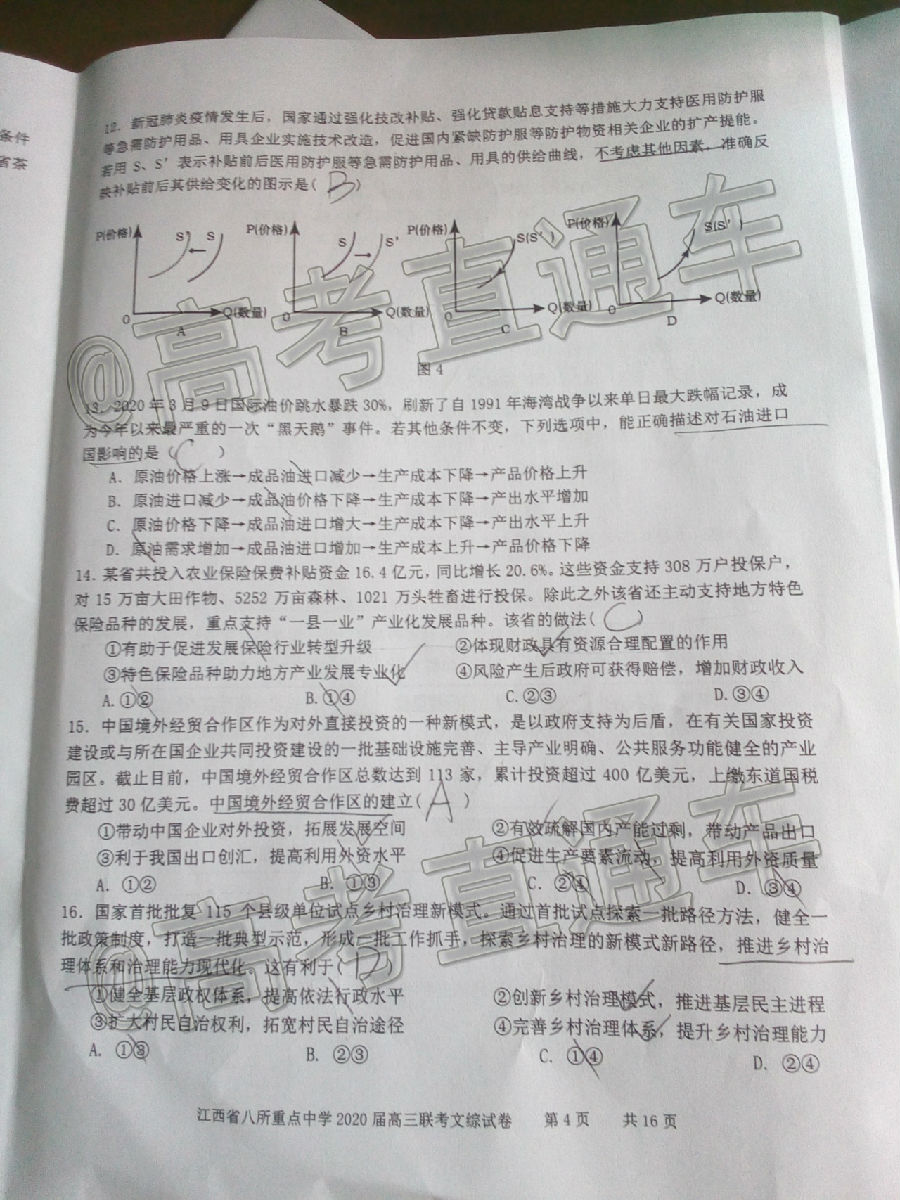 条件
省茶
12. 新冠肺炎疫情发生后，国家通过强化技改补贴、强化贷款贴息支持等措施大力支持医用防护服
等急需防护用品、用具企业实施技术改造，促进国内紧缺防护服等防护物资相关企业的扩产提能。
若用 S、S′表示补贴前后医用防护服等急需防护用品、用具的供给曲线，不考虑其他因素，准确反
映补贴前后其供给变化的图示是( B )
P(价格) S′ S Q(数量) 0 A
P(价格) S S′ Q(数量) 0 B
P(价格) S(S′) Q(数量) 0 C
P(价格) S(S′) Q(数量) 0 D
图 4
13. 2020 年 3 月 9 日国际油价跳水暴跌 30%，刷新了自 1991 年海湾战争以来单日最大跌幅记录，成
为今年以来最严重的一次“黑天鹅”事件。若其他条件不变，下列选项中，能正确描述对石油进口
国影响的是（ C ）
A. 原油价格上涨→成品油进口减少→生产成本下降→产品价格上升
B. 原油进口减少→成品油价格下降→生产成本下降→产出水平增加
C. 原油价格下降→成品油进口增大→生产成本下降→产出水平上升
D. 原油需求增加→成品油进口增加→生产成本上升→产品价格下降
14. 某省共投入农业保险保费补贴资金 16.4 亿元，同比增长 20.6%。这些资金支持 308 万户投保户，
对 15 万亩大田作物、5252 万亩森林、1021 万头牲畜进行投保。除此之外该省还主动支持地方特色
保险品种的发展，重点支持“一县一业”产业化发展品种。该省的做法( C )
①有助于促进发展保险行业转型升级 ②体现财政具有资源合理配置的作用
③特色保险品种助力地方产业发展专业化 ④风险产生后政府可获得赔偿，增加财政收入
A. ①② B. ①④ C. ②③ D. ③④
15. 中国境外经贸合作区作为对外直接投资的一种新模式，是以政府支持为后盾，在有关国家投资
建设或与所在国企业共同投资建设的一批基础设施完善、主导产业明确、公共服务功能健全的产业
园区。截止目前，中国境外经贸合作区总数达到 113 家，累计投资超过 400 亿美元，上缴东道国税
费超过 30 亿美元。中国境外经贸合作区的建立( A )
①带动中国企业对外投资，拓展发展空间 ②有效疏解国内产能过剩，带动产品出口
③利于我国出口创汇，提高利用外资水平 ④促进生产要素流动，提高利用外资质量
A. ①② B. ①③ C. ②④ D. ③④
16. 国家首批批复 115 个县级单位试点乡村治理新模式。通过首批试点探索一批路径方法，健全一
批政策制度，打造一批典型示范，形成一批工作抓手，探索乡村治理的新模式新路径，推进乡村治
理体系和治理能力现代化。这有利于( D )
①健全基层政权体系，提高依法行政水平 ②创新乡村治理模式，推进基层民主进程
③扩大村民自治权利，拓宽村民自治途径 ④完善乡村治理体系，提升乡村治理能力
A. ①③ B. ②③ C. ①④ D. ②④
江西省八所重点中学 2020 届高三联考文综试卷 第 4 页 共 16 页
@高考直通车
@高考直通车